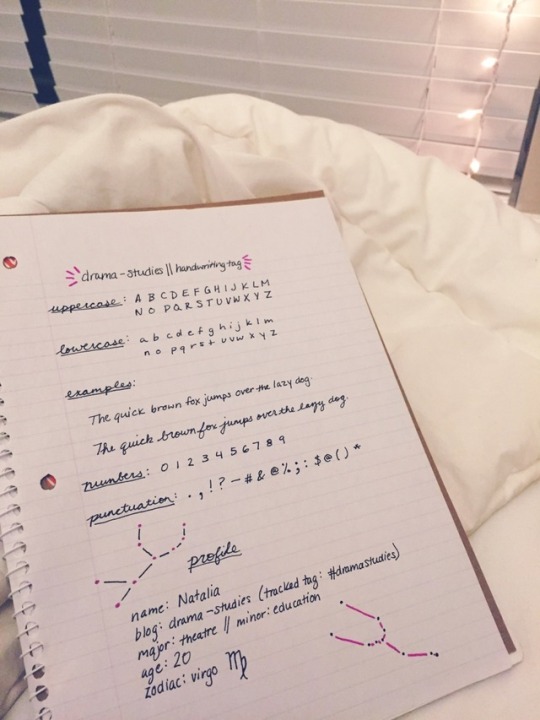 drama-studies || handwriting tag
uppercase: A B C D E F G H I J K L M
N O P Q R S T U V W X Y Z
lowercase: a b c d e f g h i j k l m
n o p q r s t u v w x y z
examples:
The quick brown fox jumps over the lazy dog.
The quick brown fox jumps over the lazy dog.
numbers: 0 1 2 3 4 5 6 7 8 9
punctuation: . , ! ? - # & @ % ; : $ @ ( ) *
profile
name: Natalia
blog: drama-studies (tracked tag: #dramastudies)
major: theatre // minor: education
age: 20
zodiac: virgo ♍